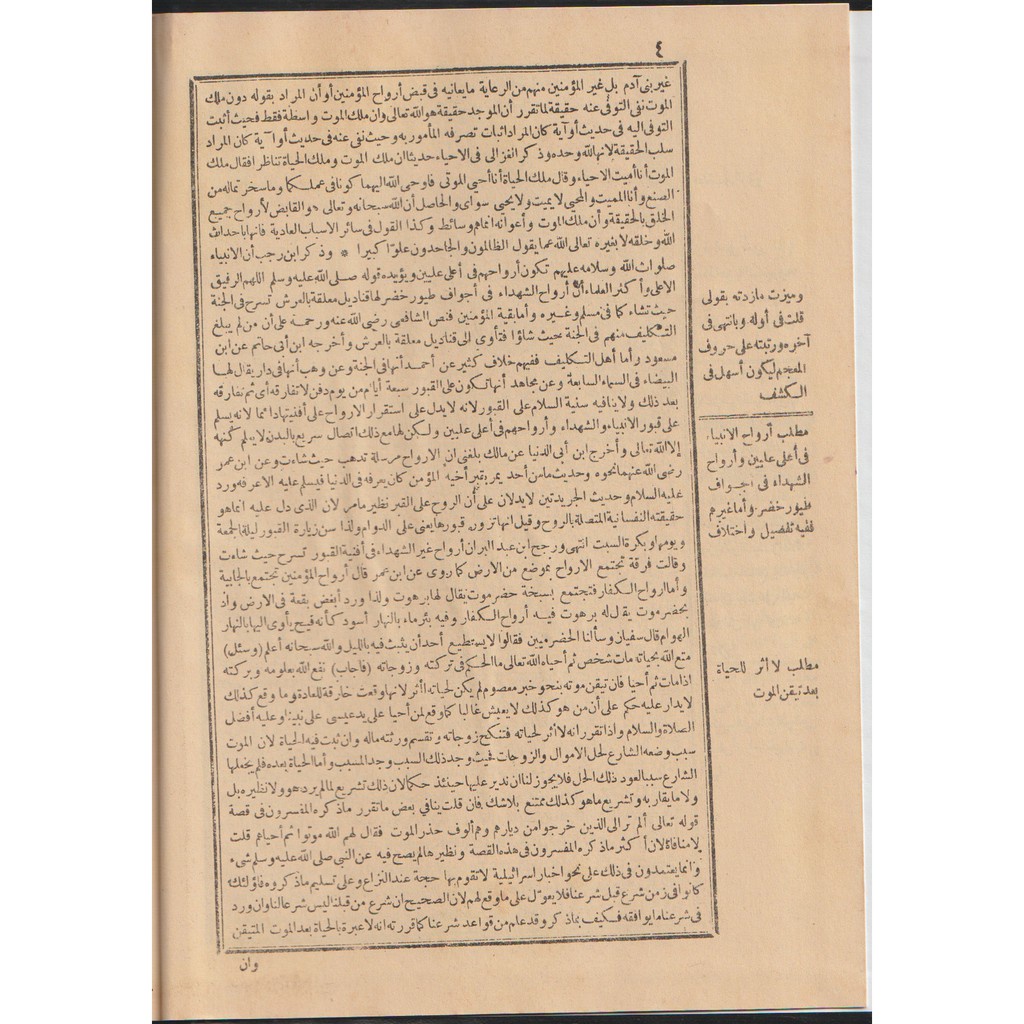 ٤
غير بنى آدم بل غير المؤمنين منهم من الرعاية ما يعانيه فى قبض أرواح المؤمنين أو أن المراد بقوله دون ملك
الموت نفى التوفى عنه حقيقة لما تقرر أن الموجد حقيقة هو الله تعالى وان ملك الموت واسطة فقط فحيث أثبت
التوفى اليه فى حديث أو آية كان المراد اثبات تصرفه المأمور به وحيث نفى عنه فى حديث أو آية كان المراد
سلب الحقيقة لانها لله وحده وذكر الغزالى فى الاحياء حديثا ان ملك الموت وملك الحياة تناظرا فقال ملك
الموت أنا أميت الاحياء وقال ملك الحياة أنا أحيى الموتى فاوحى الله اليهما كونا فى عملكما وما سخرتما له من
الصنع وأنا المميت والمحيى لا يميت ولا يحيى سواى والحاصل أن الله سبحانه وتعالى هو القابض لأرواح جميع
الخلق بالحقيقة وأن ملك الموت وأعوانه انما هم وسائط وكذا القول فى سائر الاسباب العادية فانها باحداث
الله وخلقه لا بغيره تعالى الله عما يقول الظالمون والجاحدون علوا كبيرا * وذكر ابن رجب أن الانبياء
صلوات الله وسلامه عليهم تكون أرواحهم فى أعلى عليين ويؤيده قوله صلى الله عليه وسلم اللهم الرفيق
الاعلى وأكثر العلماء أن أرواح الشهداء فى أجواف طيور خضر لها قناديل معلقة بالعرش تسرح فى الجنة
حيث تشاء كما فى مسلم وغيره وأما بقية المؤمنين فنص الشافعى رضى الله عنه ورحمه على أن من لم يبلغ
التكليف منهم فى الجنة حيث شاؤا فتأوى الى قناديل معلقة بالعرش وأخرجه ابن أبى حاتم عن ابن
مسعود وأما أهل التكليف ففيهم خلاف كثير عن أحمد أنها فى الجنة وعن وهب أنها فى دار يقال لها
البيضاء فى السماء السابعة وعن مجاهد أنها تكون على القبور سبعة أيام من يوم دفن لا تفارقه أى ثم تفارقه
بعد ذلك ولا ينافيه سنية السلام على القبور لانه لا يدل على استقرار الارواح على أفنيتها دائما لانه يسلم
على قبور الانبياء والشهداء وأرواحهم فى أعلى عليين ولكن لها مع ذلك اتصال سريع بالبدن لا يعلم كنهه
إلا الله تعالى وأخرج ابن أبى الدنيا عن مالك بلغنى ان الارواح مرسلة تذهب حيث شاءت وعن ابن عمر
رضى الله عنهما نحوه وحديث ما من أحد يمر بقبر أخيه المؤمن كان يعرفه فى الدنيا فيسلم عليه الا عرفه ورد
عليه السلام وحديث الجريدتين لا يدلان على أن الروح على القبر نظير ما مر لان الذى دل عليه انما هو
حقيقته النفسانية المتصلة بالروح وقيل انها تزور قبورها يعنى على الدوام ولذا سن زيارة القبور ليلة الجمعة
ويومها وبكرة السبت انتهى ورجح ابن عبد البر ان أرواح غير الشهداء فى أفنية القبور تسرح حيث شاءت
وقالت فرقة تجتمع الارواح بموضع من الارض كما روى عن ابن عمر قال أرواح المؤمنين تجتمع بالجابية
وأما ارواح الكفار فتجتمع بسبخة حضرموت يقال لها برهوت ولذا ورد أبغض بقعة فى الارض واد
بحضرموت يقال له برهوت فيه أرواح الكفار وفيه بئر ماء بالنهار أسود كأنه قيح يأوى اليها بالنهار
الهوام قال سفيان وسألنا الحضرميين فقالوا لا يستطيع أحد أن يثبت فيه بالليل والله سبحانه أعلم (وسئل)
متع الله بحياته مات شخص ثم أحياه الله تعالى ما الحكم فى تركته وزوجاته (فأجاب) نفع الله بعلومه وبركته
اذا مات ثم أحيا فان تيقن موته بنحو خبر معصوم لم يكن لحياته أثر لانها وقعت خارقة للعادة وما وقع كذلك
لا يدار عليه حكم على أن من هو كذلك لا يعيش غالبا كما وقع لمن أحيا على يد عيسى على نبينا وعليه أفضل
الصلاة والسلام واذا تقرر انه لا أثر لحياته فتنكح زوجاته وتقسم ورثته ماله وان ثبتت فيه الحياة لان الموت
سبب وضعه الشارع لحل الاموال والزوجات فحيث وجد ذلك السبب وجد المسبب وأما الحياة بعده فلم يجعلها
الشارع سببا لعود ذلك الحل فلا يجوز لنا ان ندير عليها حينئذ حكما لان ذلك تشريع لما لم يرد هو ولا نظيره بل
ولا ما يقاربه وتشريع ما هو كذلك ممتنع بلا شك فان قلت ينافى بعض ما تقرر ما ذكره المفسرون فى قصة
قوله تعالى ألم تر الى الذين خرجوا من ديارهم وهم ألوف حذر الموت فقال لهم الله موتوا ثم أحياهم قلت
لا منافاة لان أكثر ما ذكره المفسرون فى هذه القصة ونظيرها لم يصح فيه عن النبى صلى الله عليه وسلم شىء
وانما يعتمدون فى ذلك على نحو أخبار اسرائيلية لا تقوم بها حجة عند النزاع وعلى تسليم ما ذكروه فاولئك
كانوا فى زمن شرع قبل شرعنا فلا يعول على ما وقع لهم لان الصحيح ان شرع من قبلنا ليس شرعا لنا وان ورد
فى شرعنا ما يوافقه فكيف بما ذكر وقد علم من قواعد شرعنا كما قررته انه لا عبرة بالحياة بعد الموت المتيقن
وان
وميزت ما زدته بقولى
قلت فى أوله وبانتهى فى
آخره ورتبته على حروف
المعجم ليكون أسهل فى
الكشف
مطلب أرواح الانبياء
فى أعلى عليين وأرواح
الشهداء فى أجواف
طيور خضر وأما غيرهم
ففيه تفصيل واختلاف
مطلب لا أثر للحياة
بعد تيقن الموت